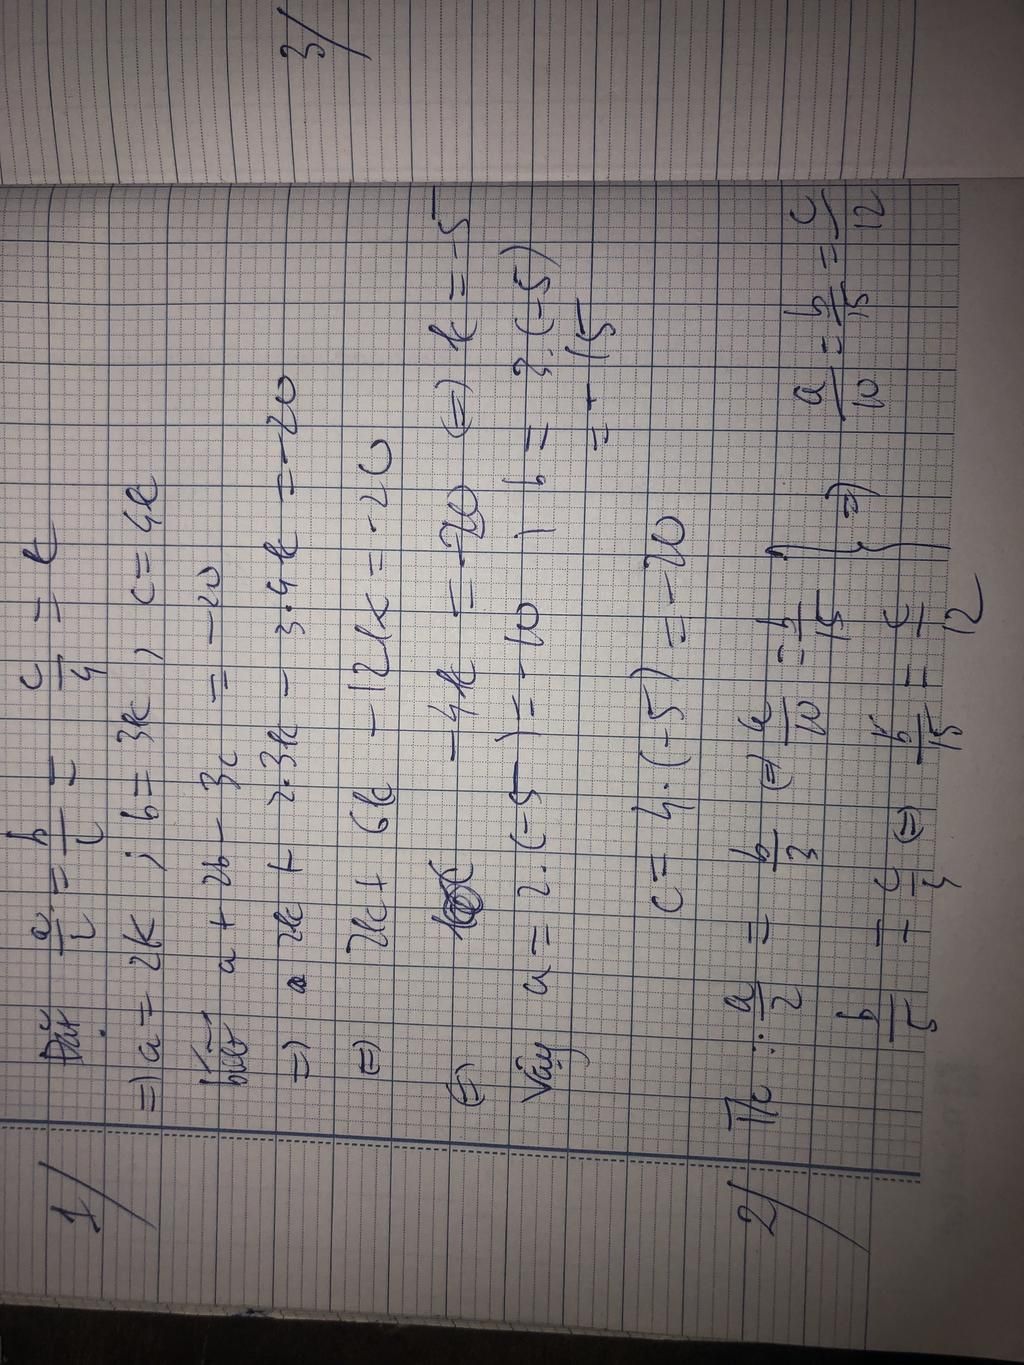 1/ Đặt a/2 = b/c = c/4 = k
=) a = 2k ; b = 3k , c = 4k
Vì biết a + 2b - 3c = -20
=) 2k + 2.3k - 3.4k = -20
(=) 2k + 6k - 12k = -20
(=) -4k = -20 (=) k = -5
Vậy a = 2.(-5) = -10 , b = 3.(-5)
= -15
c = 4.(-5) = -20
2/ Ta c : a/2 = b/3 (=) a/10 = b/15
b/5 = c/4 (=) b/15 = c/12
} =) a/10 = b/15 = c/12
3/